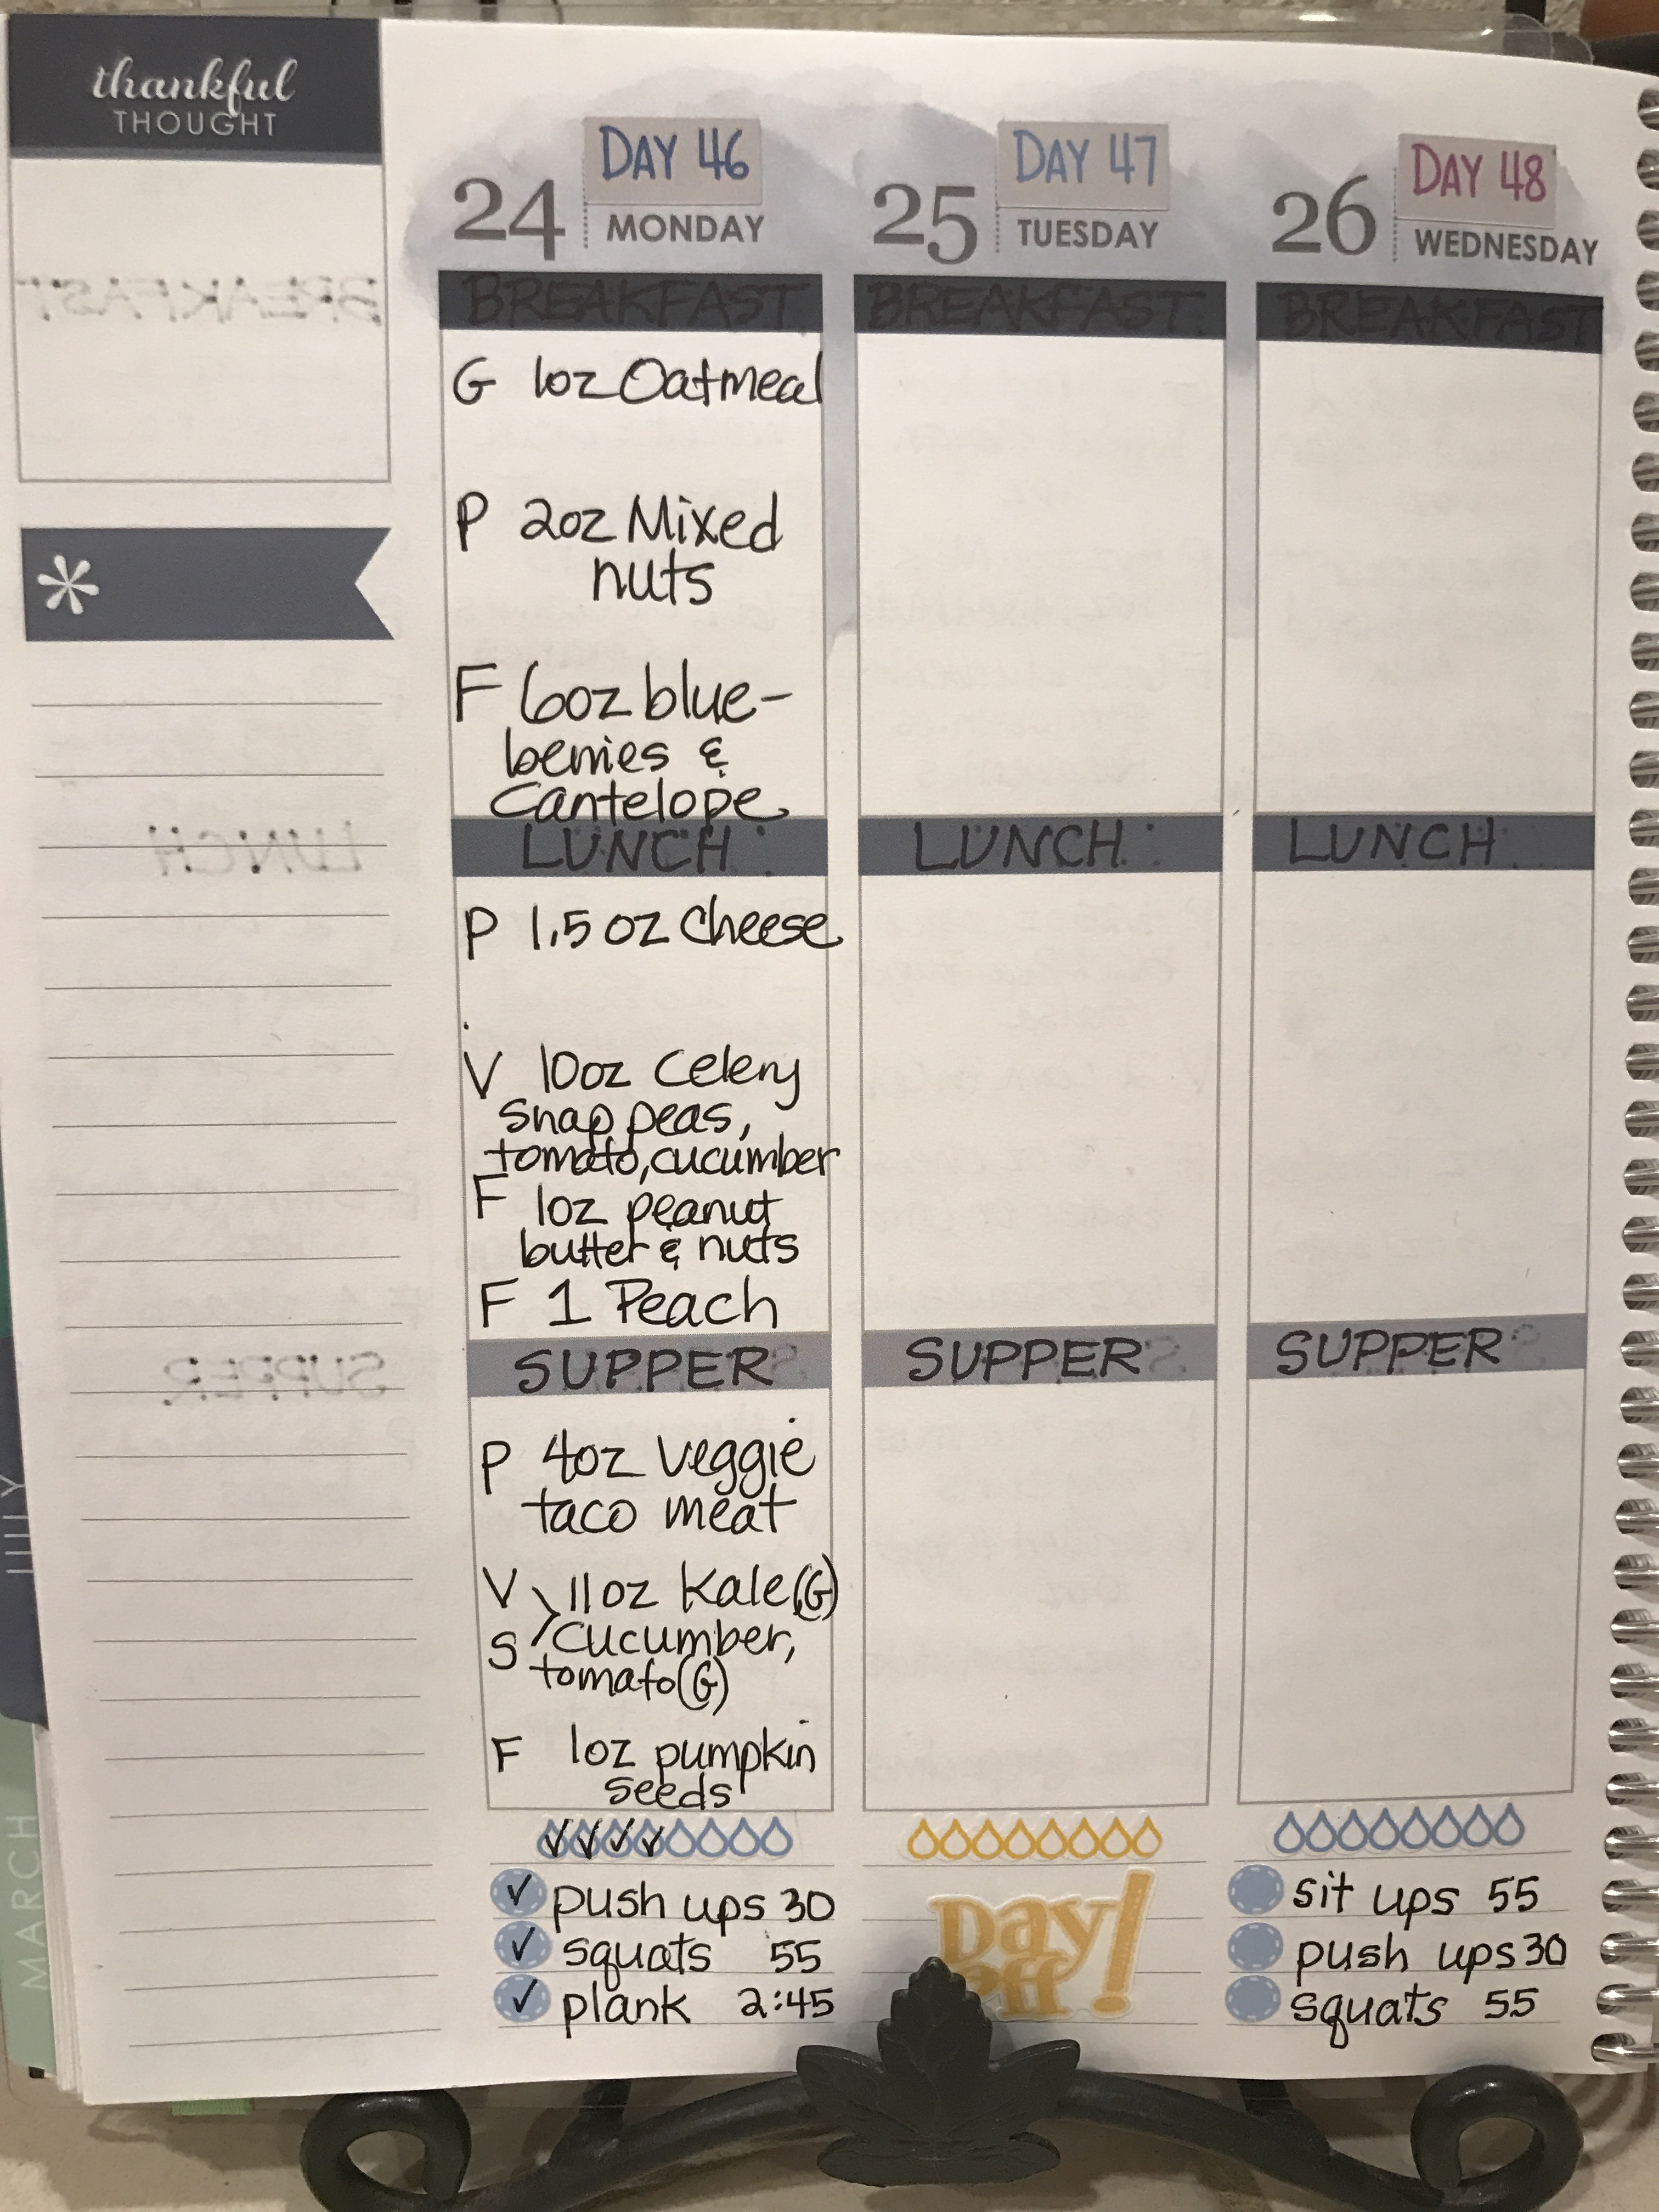 thankful
THOUGHT
DAY 46
24 MONDAY
BREAKFAST
G 1oz Oatmeal
P 2oz Mixed
nuts
F 6oz blue-
berries &
Cantelope
LUNCH
P 1.5 oz Cheese
V 10oz Celery
Snap peas,
tomato, cucumber
F 1oz peanut
butter & nuts
F 1 Peach
SUPPER
P 4oz Veggie
taco meat
V 11oz Kale(G)
S cucumber,
tomato(G)
F 1oz pumpkin
seeds
push ups 30
squats 55
plank 2:45
DAY 47
25 TUESDAY
BREAKFAST
LUNCH
SUPPER
Day
off!
DAY 48
26 WEDNESDAY
BREAKFAST
LUNCH
SUPPER
sit ups 55
push ups 30
squats 55
JULY
MARCH